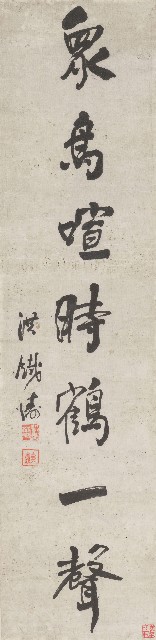 眾鳥喧時鶴一聲
洪鐵濤